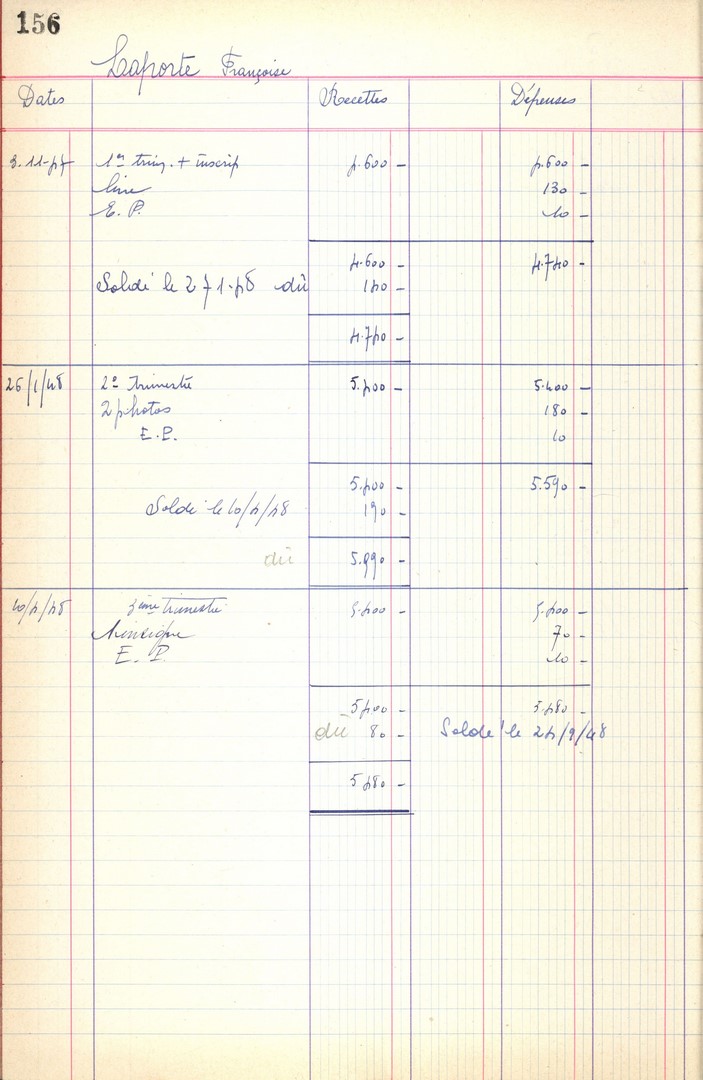 156
Laporte Françoise
Dates Recettes Dépenses
3.11-47 1er trim. + inscrip 4.600 - 4.600 -
livre 130 -
E. P. 10 -
4.600 - 4.740 -
Soldé le 27 1-48 dû 140 -
4.740 -
26/1/48 2e Trimestre 5.400 - 5.400 -
2 photos 180 -
E.P. 10
5.400 - 5.590 -
Soldé le 10/4/48 190 -
dû 5.590 -
10/4/48 3ème trimestre 5.400 - 5.400 -
1 insigne 70 -
E. P. 10 -
5400 - 5.480 -
dû 80 - Soldé le 24/9/48
5480 -